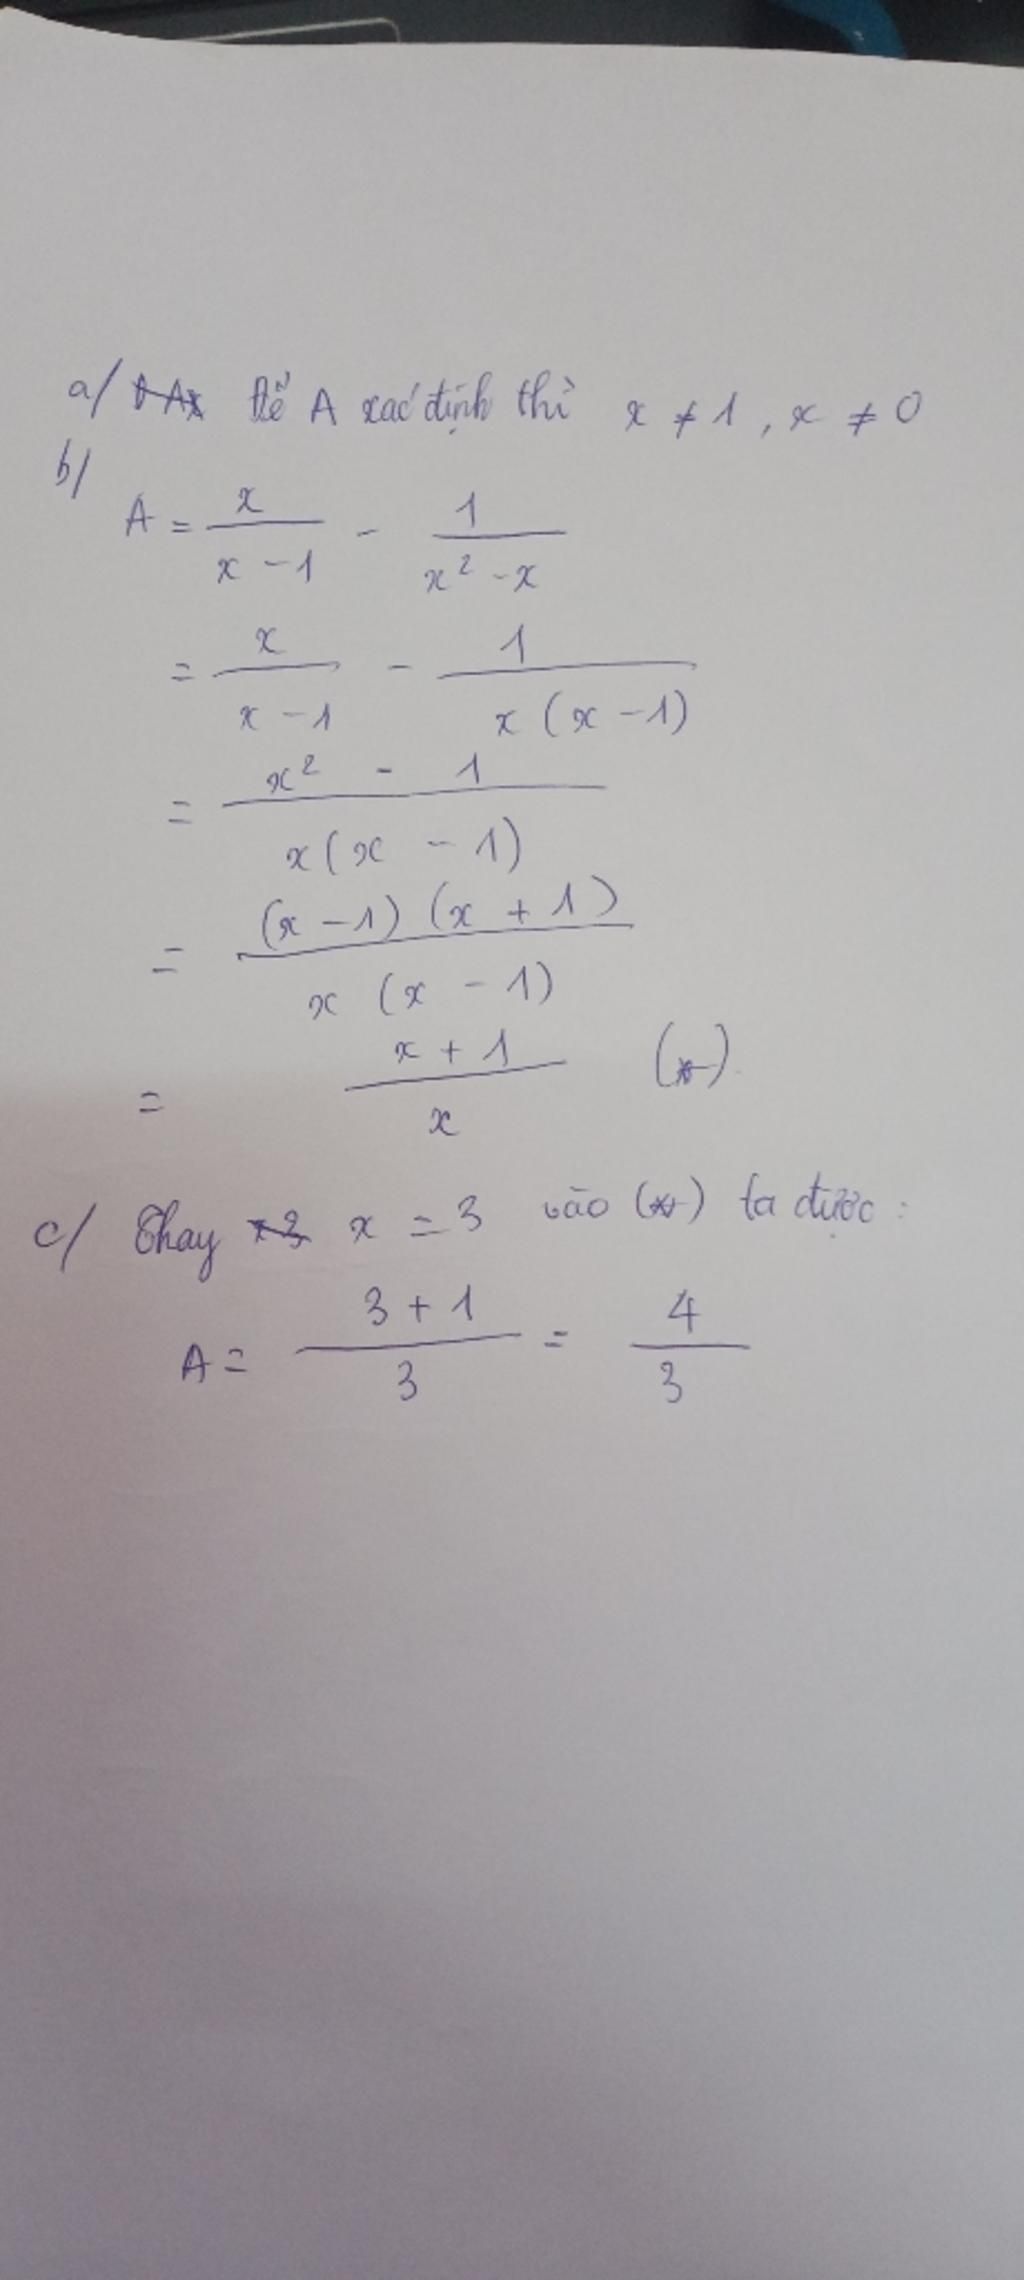 a/ Để A xác định thì x ≠ 1, x ≠ 0
b/
A = x/(x - 1) - 1/(x² - x)
= x/(x - 1) - 1/(x(x - 1))
= (x² - 1)/(x(x - 1))
= ((x - 1)(x + 1))/(x(x - 1))
= (x + 1)/x (*)
c/ Thay x = 3 vào (*) ta được:
A = (3 + 1)/3 = 4/3